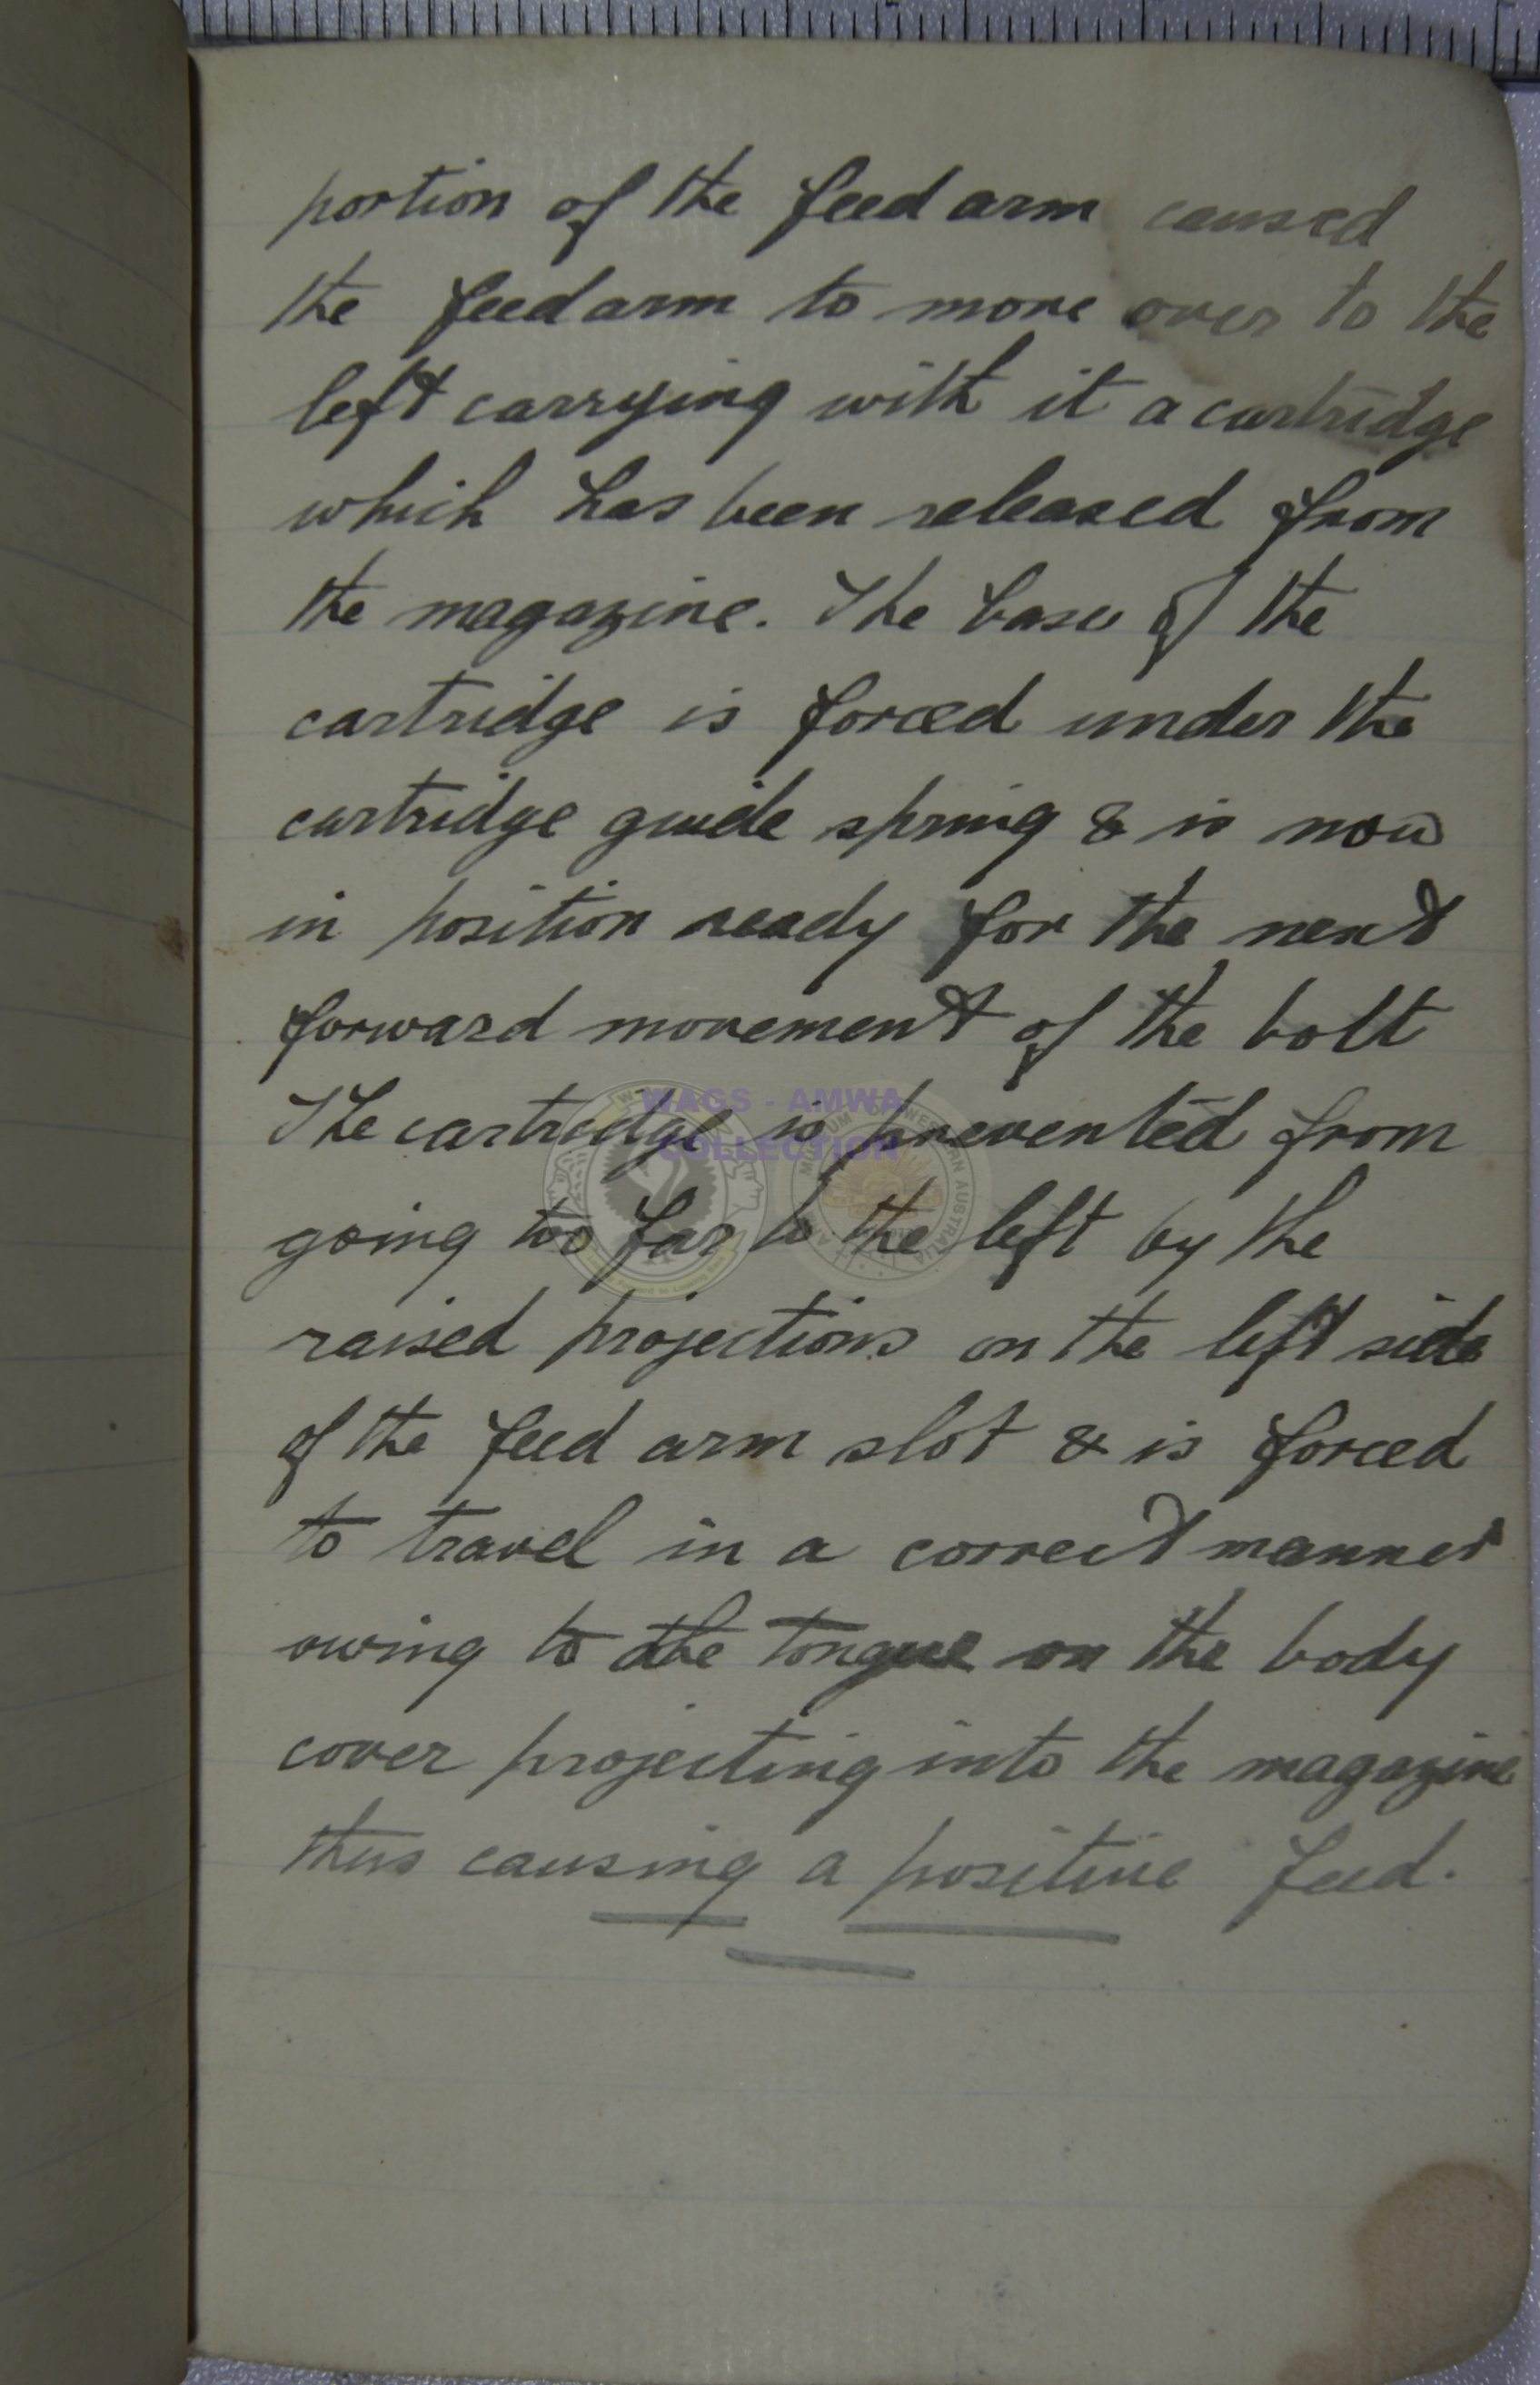 portion of the feed arm caused
the feed arm to move over to the
left carrying with it a cartridge
which has been released from
the magazine. The base of the
cartridge is forced under the
cartridge guide spring & is now
in position ready for the next
forward movement of the bolt
WAGS - AMWA
COLLECTION
The cartridge is prevented from
going too far to the left by the
raised projections on the left side
of the feed arm slot & is forced
to travel in a correct manner
owing to the tongue on the body
cover projecting into the magazine
thus causing a positive feed.